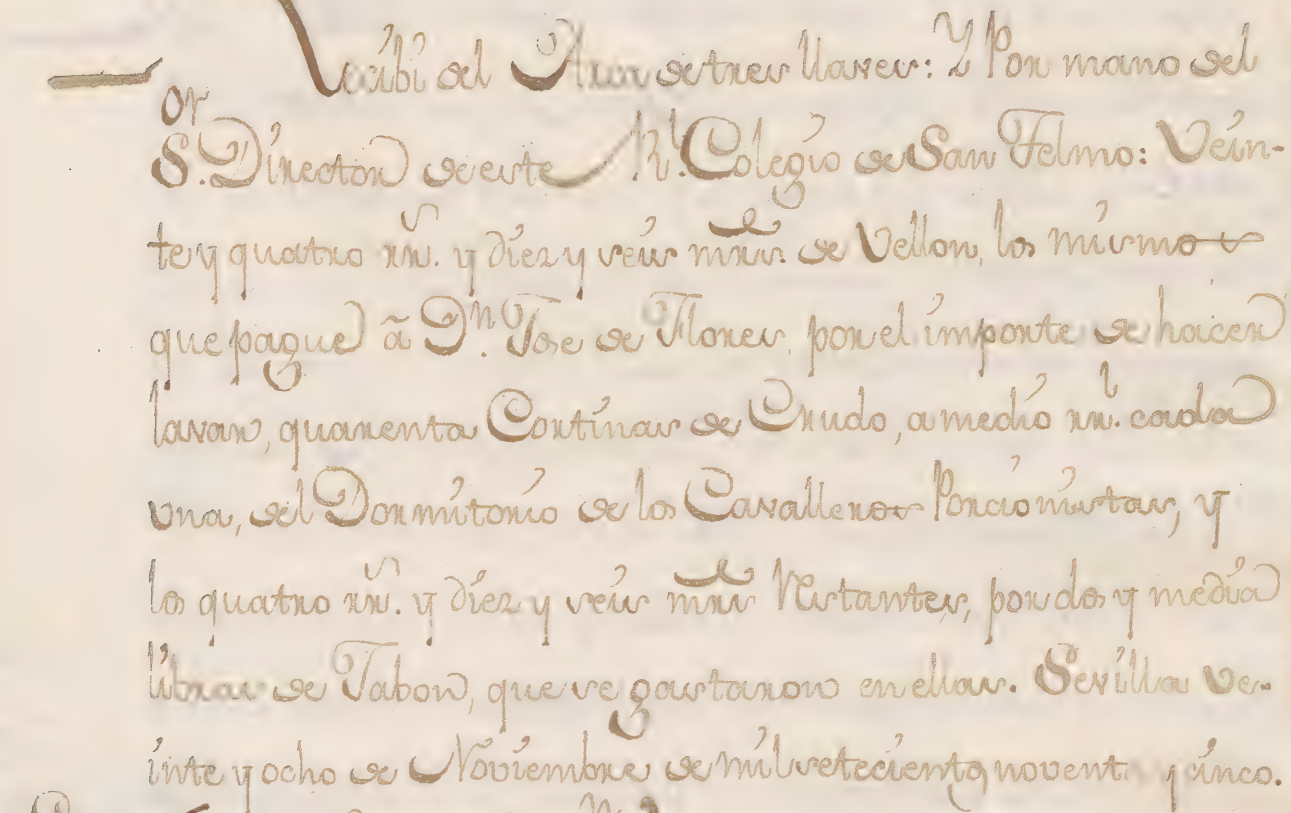 Recibi del Arca de tres llaves: Y Por mano del
S.or Director de este Rl. Colegio de San Telmo: Vein-
te y quatro rrs. y diez y seis mrs. de Vellon, los mismos
que pague à Dn. Jose de Flores, por el importe de hacer
lavar, quarenta Cortinas de Crudo, a medio rrl. cada
una, del Dormitorio de los Cavalleros Porcionistas, y
los quatro rrs. y diez y seis mrs Restantes, por dos y media
libras de Jabon, que se gastaron en ellas. Sevilla Ve-
inte y ocho de Noviembre de mil setecientos noventa y cinco.